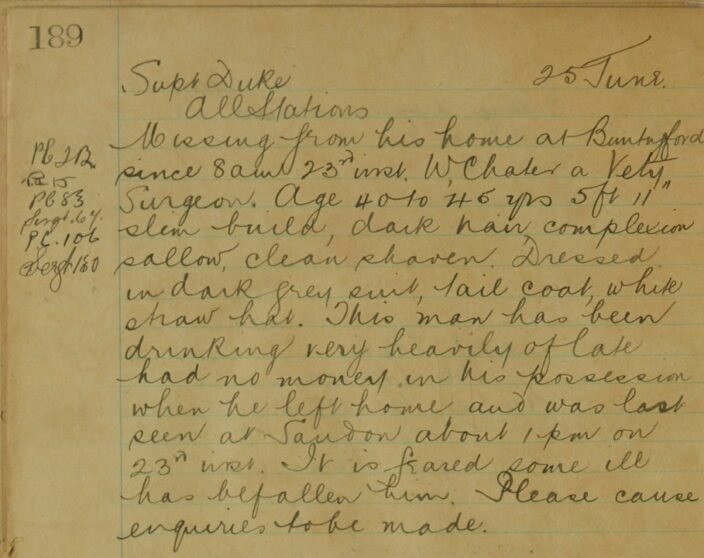 189
Supt Duke 25 June.
All Stations
Missing from his home at Buntingford
since 8am 23rd inst. W, Chater a Vety
Surgeon. Age 40 to 45 yrs 5ft 11"
slim build, dark hair, complexion
sallow, clean shaven. Dressed
in dark grey suit, tail coat, white
straw hat. This man has been
drinking very heavily of late
had no money in his possession
when he left home and was last
seen at Sandon about 1 pm on
23rd inst. It is feared some ill
has befallen him. Please cause
enquiries to be made.
PC
PC 83
Sergt. 64.
PC. 106
Sergt 130